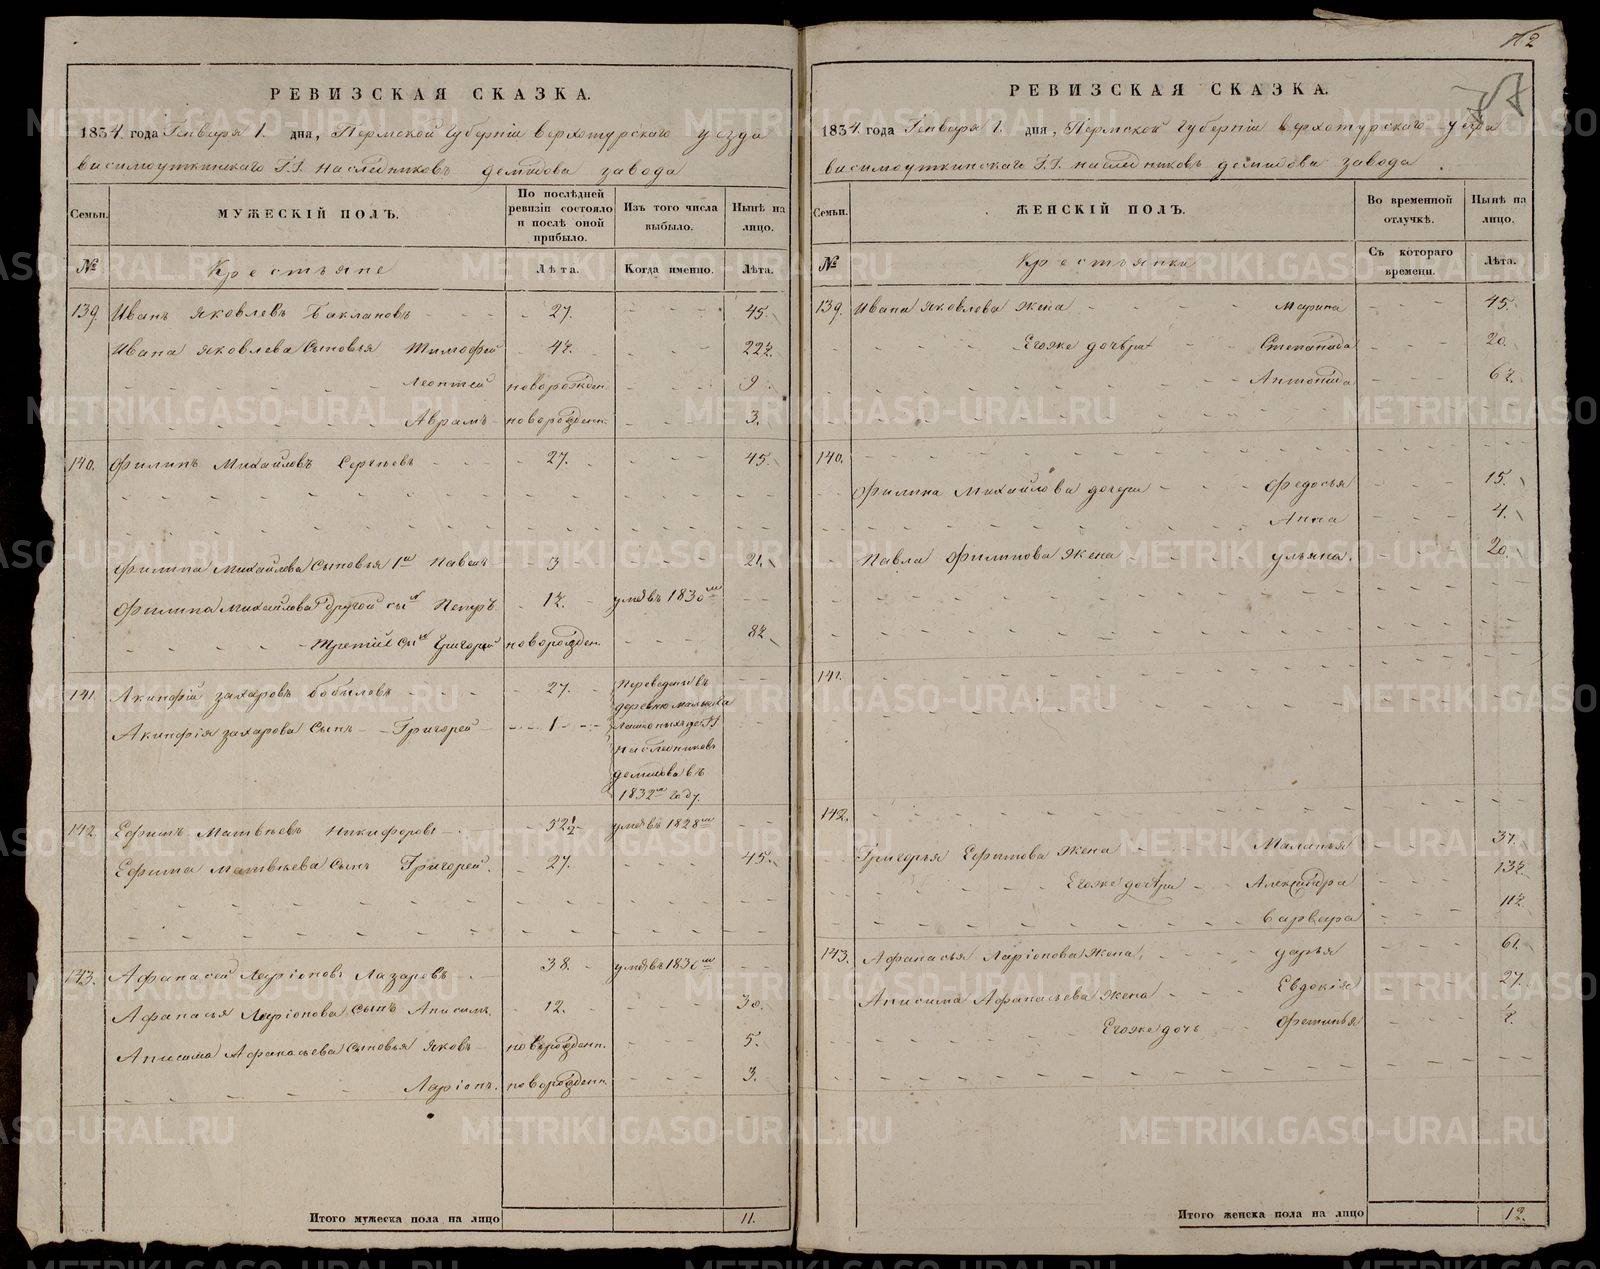 РЕВИЗСКАЯ СКАЗКА.
1834. года Генваря 1. дня, Пермской Губерніи Верхотурскаго уезда
висимоуткинскаго Г.Г. наследниковъ демидова завода
Семьи.
МУЖЕСКІЙ ПОЛЪ.
По послѣдней ревизіи состояло и послѣ оной прибыло.
Изъ того числа выбыло.
Нынѣ на лицо.
№
Крестьяне
Лѣта.
Когда именно.
Лѣта.
139. Иванъ Яковлевъ Баклановъ 27. 45.
Ивана Яковлева Сыновья Тимофей 4½. 22½.
Леонтей новорожден. 9
Аврамъ новорожденн. 3.
140. Филипъ Михайловъ Сергѣевъ 27. 45.
Филипа Михайлова Сыновья 1й Павелъ 3 21.
Филипа Михайлова другой сын Петръ 1½. умеръ 1830м
Третій Сын Григорей новорожден. 8½
141. Акинфій Захаровъ Бобылевъ 27. Переведены въ
деревню
Акинфія Захарова Сынъ Григорей 1
наследниковъ
демидова въ
1832м году.
142. Ефимъ Матвѣевъ Никифоровъ 52½ умеръ 1828м
Ефима Матвѣева Сынъ Григорей. 27. 45.
143. Афанасей Ларіоновъ Лазаревъ 38. умеръ 1830м
Афанасья Ларіонова Сынъ Анисимъ. 12. 30.
Анисима Афанасьева Сыновья Яковъ новорожденн. 5.
Ларіонъ. новорожденн. 3.
Итого мужеска пола на лицо 11.
РЕВИЗСКАЯ СКАЗКА.
1834. года Генваря 1. дня, Пермской Губерніи Верхотурскаго уезда
висимоуткинскаго Г.Г. наследниковъ демидова завода
Семьи.
ЖЕНСКІЙ ПОЛЪ.
Во временной отлучкѣ.
Нынѣ на лицо.
№
Крестьянки
Съ котораго времени.
Лѣта.
139. Ивана Яковлова Жена Марина 45.
Егоже дочери Степанида 20.
Антонида 6½.
140.
Филипа Михайлова дочери Федосья 15.
Анна 4.
Павла Филипова Жена ульяна. 20.
141.
142.
Григорья Ефимова Жена Маланья 37.
Егоже дочери Александра 13½
Варвара 11½
143. Афанасья Ларіонова Жена, дарья 61.
Анисима Афанасьева Жена Евдокія 27.
Егоже дочь Фетинья ½.
Итого женска пола на лицо 12.
METRIKI.GASO-URAL.RU